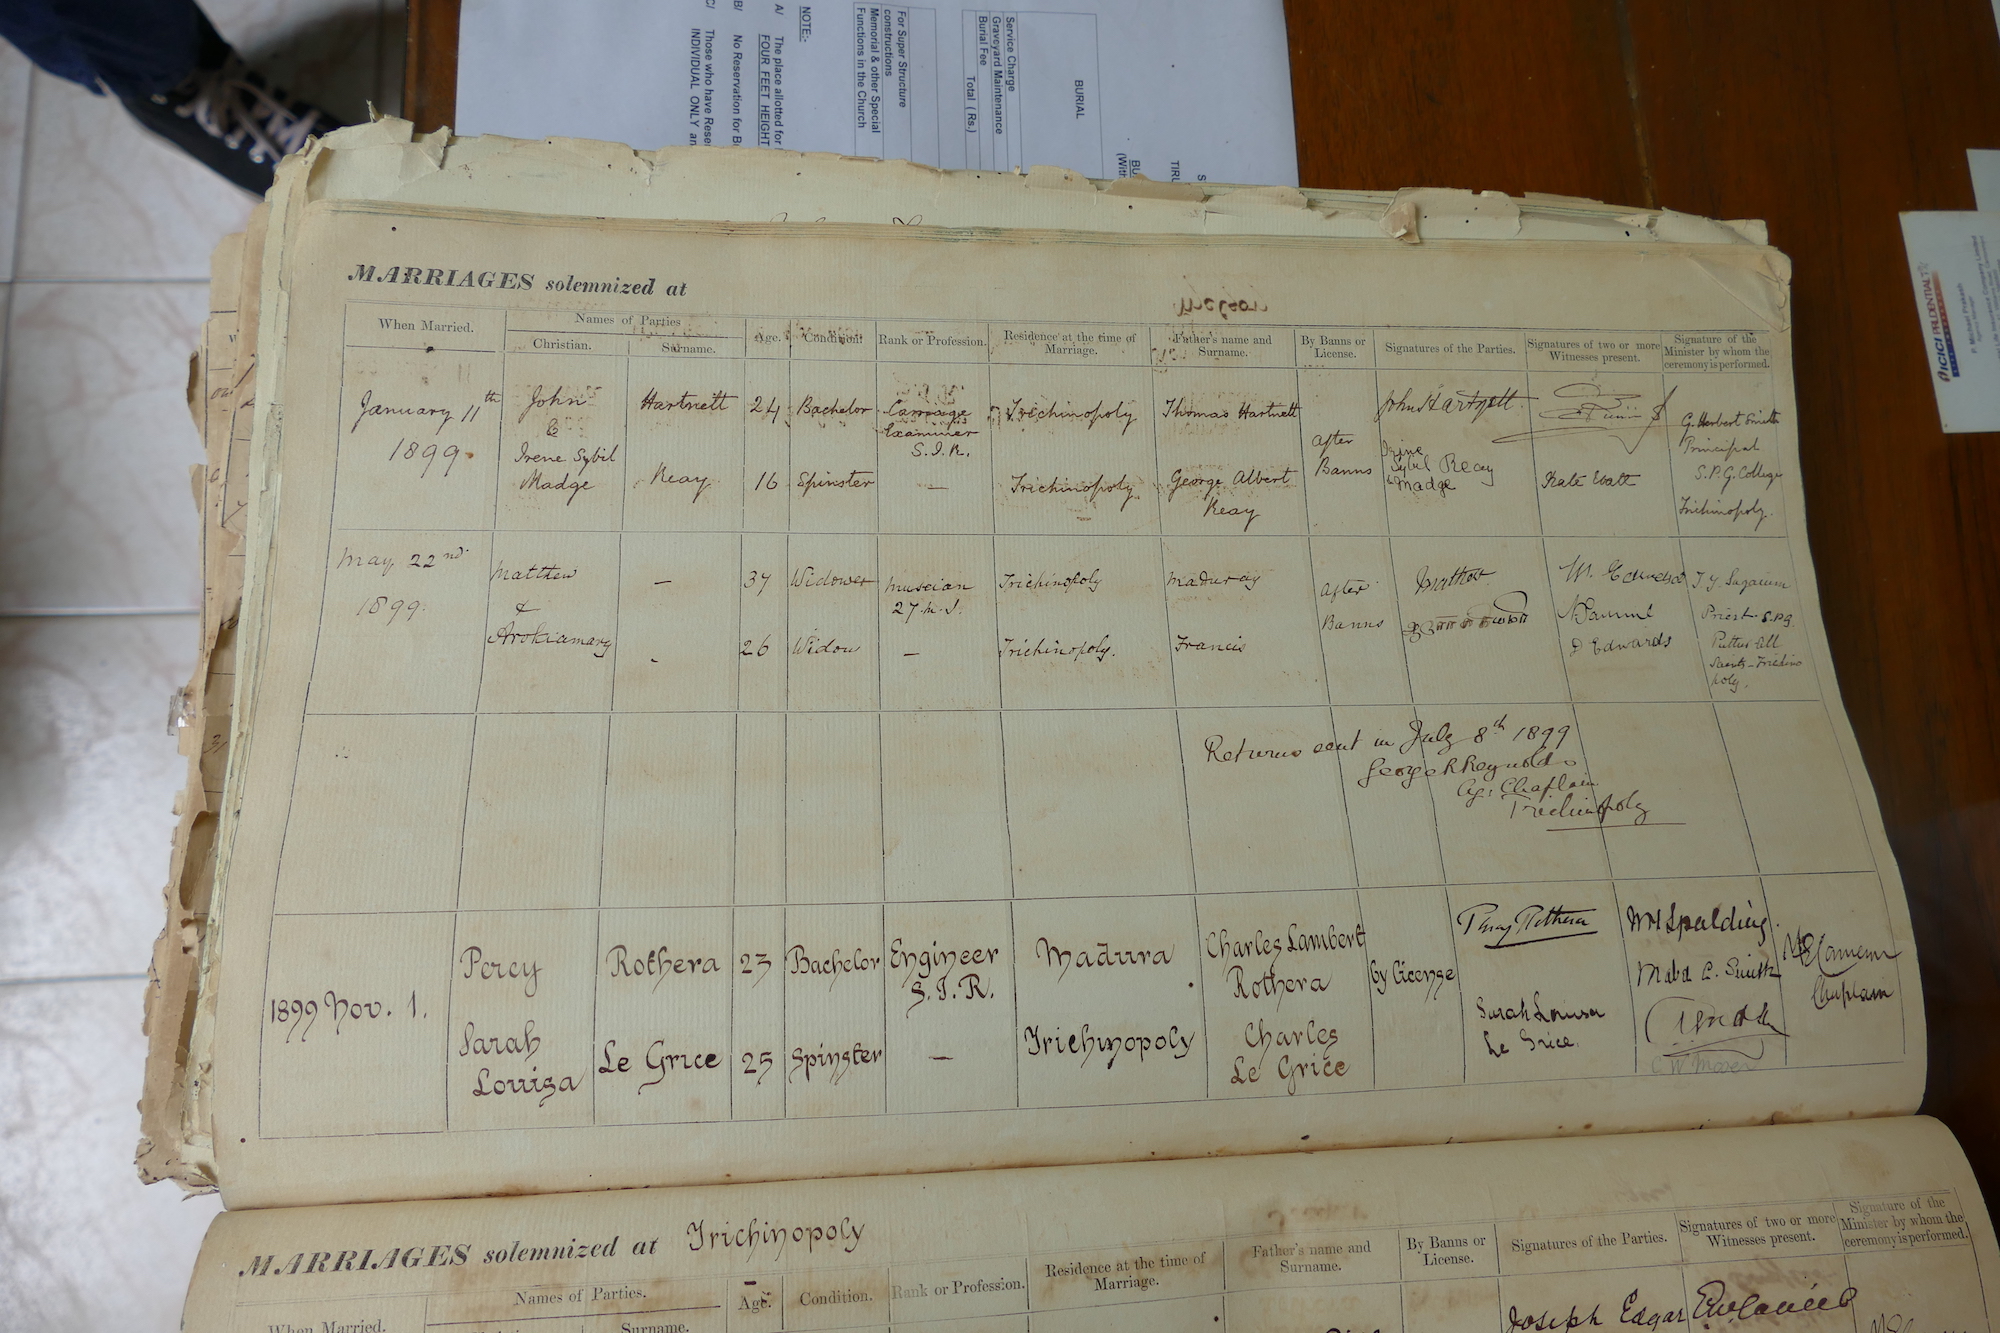 BURIAL
Service Charge
Graveyard Maintenance
Burial Fee
Total (Rs.)
For Super Structure
constructions
Memorial & other Special
Functions in the Church
NOTE:-
A/ The place allotted for
FOUR FEET HEIGHT
B/ No Reservation for
C/ Those who have
INDIVIDUAL ONLY
ICICI PRUDENTIAL
MARRIAGES solemnized at
Names of Parties
When Married. Christian. Surname. Age. Condition. Rank or Profession. Residence at the time of Marriage. Father's name and Surname. By Banns or License. Signatures of the Parties. Signatures of two or more Witnesses present. Signature of the Minister by whom the ceremony is performed.
January 11th 1899. John Hartnett 24 Bachelor Carriage Examiner S.I.R. Trichinopoly Thomas Hartnett After Banns John Hartnett
& Irene Sybil Madge Reay 16 Spinster — Trichinopoly George Albert Reay Irine Sybil Reay & Madge Kate Watt
G. Herbert Smith
Principal
S.P.G. College
Trichinopoly.
May 22nd 1899. Matthew — 37 Widower Musician 27 M.I. Trichinopoly Maduray After Banns
& Arokiamary - 26 Widow — Trichinopoly. Francis D Edwards
Priest S.P.G.
Saints - Trichinopoly.
Returns sent in July 8th 1899
George R Reynolds
Ag: Chaplain
Trichinopoly
1899 Nov. 1. Percy Rothera 23 Bachelor Engineer S.I.R. Madura Charles Lambert Rothera By License Percy Rothera W H Spalding
Sarah Louisa Le Grice 25 Spinster — Trichinopoly Charles Le Grice Sarah Louisa Le Grice.
Chaplain
MARRIAGES solemnized at Trichinopoly
Names of Parties.
When Married. Christian. Surname. Age. Condition. Rank or Profession. Residence at the time of Marriage. Father's name and Surname. By Banns or License. Signatures of the Parties. Signatures of two or more Witnesses present. Signature of the Minister by whom the ceremony is performed.
Joseph Edgar